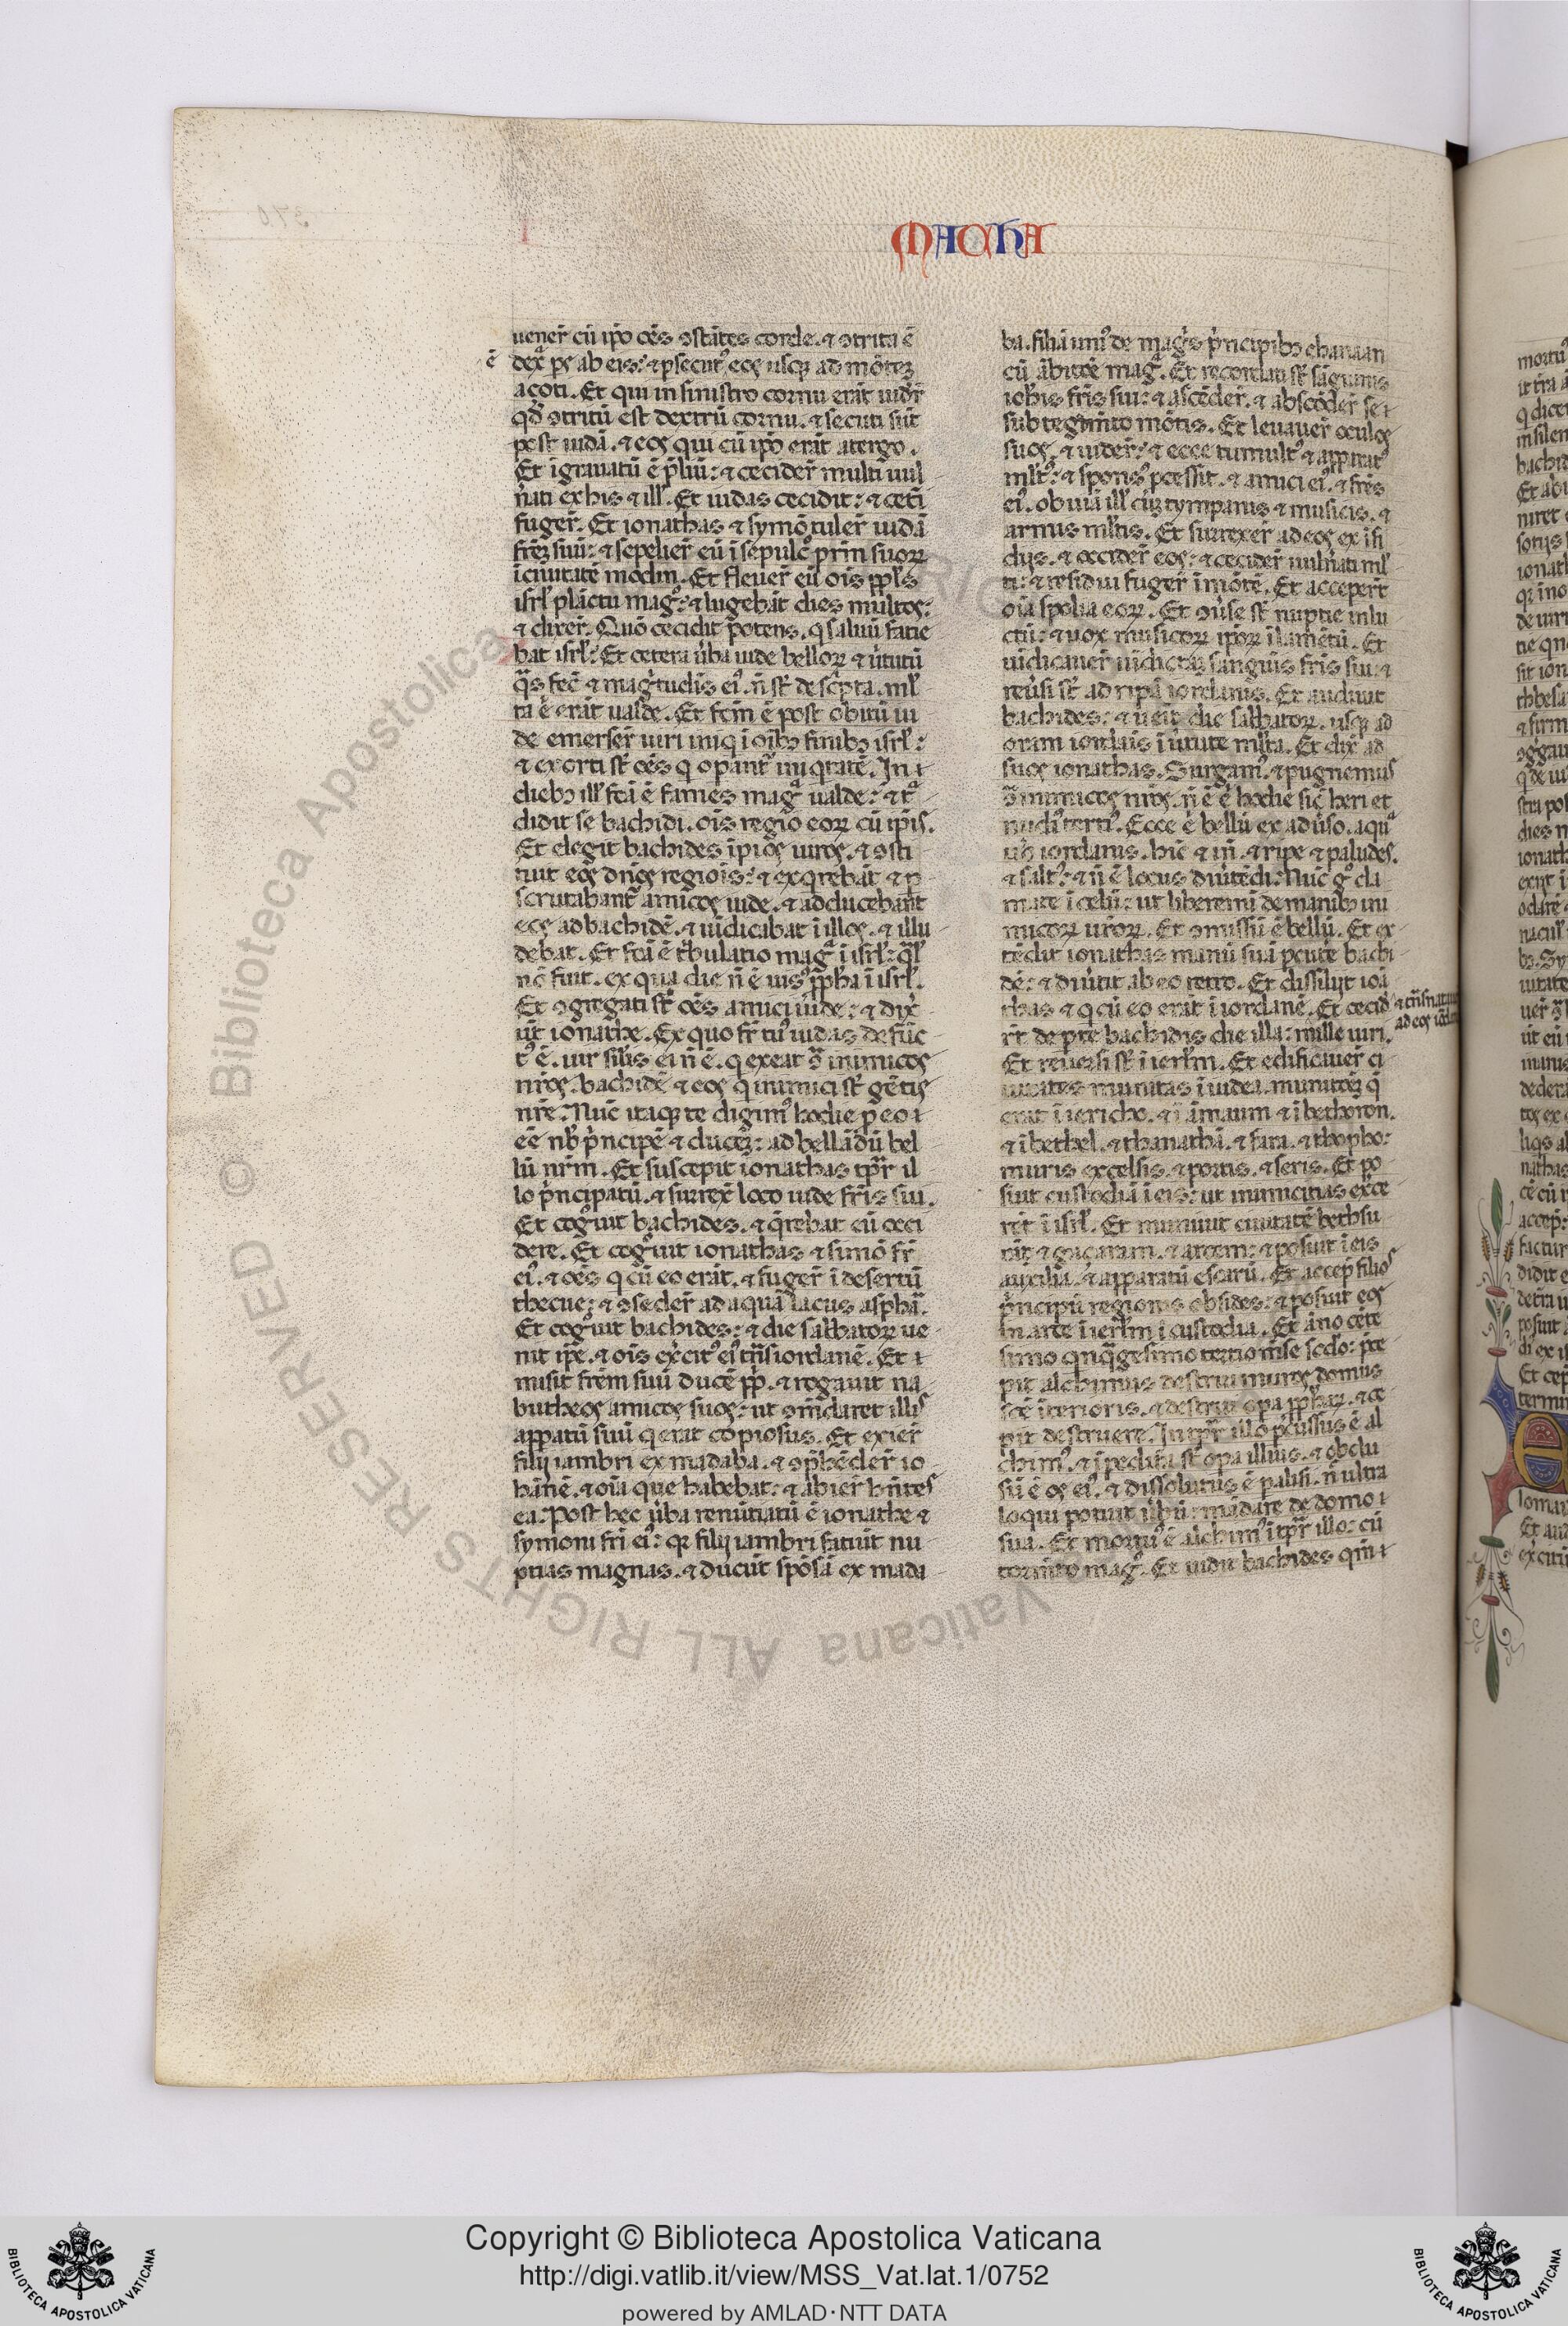 MACHA
uener̄ cū ip̄o oēs ꝯstātes corde. ⁊ ꝯtrita ē
dext̄ ps ab eis: ⁊ ꝑsecut' eos usqꝫ ad mōtez
açoti. Et qui in sinistro cornu erāt uider̄
qđ ꝯtritū est dextrū cornu. ⁊ secuti sūt
post iudā. ⁊ eos qui cū ip̄o erāt atergo.
Et īgrauatū ē p̄liū: ⁊ cecider̄ multi uul
n̄ati ex his ⁊ ill'. Et iudas cecidit: ⁊ cet̄i
fuger̄. Et ionathas ⁊ symō tuler̄ iudā
fr̄ez suū: ⁊ sepelier̄ eū ī sepulc̄ pr̄m suoꝝ
ī ciuitatē modin. Et fleuer̄ eū oīs ppl's
isrl' plāctu mag°: ⁊ lugebāt dies multos:
⁊ dixer̄. Quō cecidit potens. q saluū facie
bat isrl'. Et cetera ūba iude belloꝝ ⁊ ūtutū
q̄s fec̄ ⁊ magītudīs ei'. n̄ sr̄ descripta. ml'
ta ē erāt ualde. Et fcm̄ ē post obitū iu
de emerser̄ uiri iniq ī oībꝫ finibꝫ isrl':
⁊ exorti sr̄ oēs q opant' iniq̄tatē. In
diebꝫ ill' fcā ē fames mag̃ ualde: ⁊ t̃
didit se bachidi. oīs regio eoꝝ cū ip̄is.
Et elegit bachides īpios uiros. ⁊ ꝯsti
tuit eos dn̄os regiois: ⁊ exq̄rebāt ⁊ ꝑ
scrutabant' amicos iude. ⁊ adducebant
eos ad bachidē. ⁊ uīdicabat ī illos. ⁊ illu
debat. Et fcā ē t'bulatio mag̃ ī isrl': q̄l'
nō fuit. ex qua die n̄ ē uis' ꝓpha ī isrl'.
Et ꝯgregati sr̄ oēs amici iude: ⁊ dix̄
ūt ionathe. Ex quo fr̄ tu' iudas defūc
t' ē. uir sīl'is ei n̄ ē. q exeat ꝯ̄ inimicos
nr̄os. bachidē ⁊ eos q inimici sr̄ gētis
nr̄e. Nūc itaqꝫ te eligim' hodie ꝑ eo
eē nb' p̄ncipē ⁊ ducez: ad bellādū bel
lū nr̄m. Et suscepit ionathas tꝑr̄ il
lo p̄ncipatū. ⁊ surrex̄ loco iude fr̄is sui.
Et cog°uit bachides. ⁊ q̄rebat eū occi
dere. Et cog°uit ionathas ⁊ simō fr̄
ei'. ⁊ oēs q cū eo erāt. ⁊ fuger̄ ī desertū
thecue: ⁊ ꝯseder̄ ad aquā lacus asphā.
Et cog°uit bachides: ⁊ die sabbatoꝝ ue
nit ip̄e. ⁊ oīs ex̄cit' ei' tn̄s iordanē. Et
misit fr̄em suū ducē ppl'. ⁊ rogauit na
butheos amicos suos: ut ꝯmōdaret illis
apparatū suū q erat copiosus. Et exier̄
filij iambri ex madaba. ⁊ ꝯp̄hēder̄ io
hānē. ⁊ oīa que habebat: ⁊ abier̄ hn̄tes
ea. Post hec ūba renūtiatū ē ionathe ⁊
symoni fr̄i ei': qꝛ filij iambri faciūt nu
ptias magnas. ⁊ ducūt sposā ex mada
ba. filiā uni' de mag̃s p̄ncipibꝫ chanaan
cū ābitōē mag̃. Et recordati sr̄ sāguinis
ioh̄is fr̄is sui: ⁊ ascēder̄. ⁊ abscōder̄ se
sub tegmīto mōtis. Et leuauer̄ oculos
suos. ⁊ uider̄: ⁊ ecce tumult' ⁊ apparat'
ml't': ⁊ spons' ꝓcessit. ⁊ amici ei'. ⁊ fr̄es
ei'. obuiā ill' cū tympanis ⁊ musicis. ⁊
armis ml'tis. Et surrexer̄ ad eos ex isi
dijs. ⁊ occider̄ eos: ⁊ cecider̄ uuln̄ati ml'
ti: ⁊ residui fuger̄ ī mōtē. Et acceper̄t
oīa spolia eoꝝ. Et ꝯūse sr̄ nuptie ī lu
ctū: ⁊ uox musicoꝝ ipoꝝ ī lamētū. Et
uīdicauer̄ uīdictaz sanguīs fr̄is sui. ⁊
reūsi sr̄ ad ripā iordanis. Et audiuit
bachides: ⁊ uēit die sabbatoꝝ. usqꝫ ad
oram iordāis ī ūtute ml'ta. Et dix̄ ad
suos ionathas. Surgam'. ⁊ pugnemus
ꝯ̄ inimicos nr̄os. n̄ ē ē hodie sic̄ heri et
nudi'terti'. Ecce ē bellū ex aduso. aqu̅
uo iordanis. hīc ⁊ īn. ⁊ ripe ⁊ paludes.
⁊ salt': ⁊ n̄ ē locus diūtēdi. Nūc g° cla
mate ī celū: ut liberemī de manibꝫ ini
micoꝝ uroꝝ. Et ꝯmissū ē bellū. Et ex
tēdit ionathas manū suā ꝑcute bachi
dē: ⁊ diūtit ab eo retro. Et dissiluit ioā
thas ⁊ q cū eo erāt ī iordanē. Et cecid̄
⁊ tn̄snatau
ad eos iorda
r̄t de pte bachidis die illa: mille uiri.
Et reuersi sr̄ ī ierl'm. Et edificauer̄ ci
uitates munitas ī iudea. munitōez q̄
erat ī iericho. ⁊ ī āmaum ⁊ ī bethoron.
⁊ ī bethel. ⁊ thanathā. ⁊ fara. ⁊ thopho:
muris excelsis. ⁊ portis. ⁊ seris. Et po
suit custodiā ī eis: ut inimicitias ex̄ce
rēt ī isrl'. Et muniuit ciuitatē bethsu
rā: ⁊ gaçaram. ⁊ arcem: ⁊ posuit ī eis
auxilia. ⁊ apparatū escarū. Et accep̄ filios
p̄ncipū regionis obsides: ⁊ posuit eos
in arce ī ierl'm ī custodia. Et āno cēte
simo qnq̄gesimo tertio mēse scdo: p̄ce
pit alchimus destrui muros domus
scē īterioris. ⁊ destrui oꝑa ꝓphaꝝ. ⁊ ce
pit destruere. In tꝑr̄ illo p̄cussus ē al
chim'. ⁊ īpedita sr̄ oꝑa illius. ⁊ occlu
sū ē os ei'. ⁊ dissolutus ē palisi. n̄ ultra
loqui potuit ūbū: mādare de domo
sua. Et mortu' ē alchim' ī tꝑr̄ illo: cū
tormēto mag°. Et uidit bachides qm̄
Copyright © Biblioteca Apostolica Vaticana
http://digi.vatlib.it/view/MSS_Vat.lat.1/0752
powered by AMLAD·NTT DATA